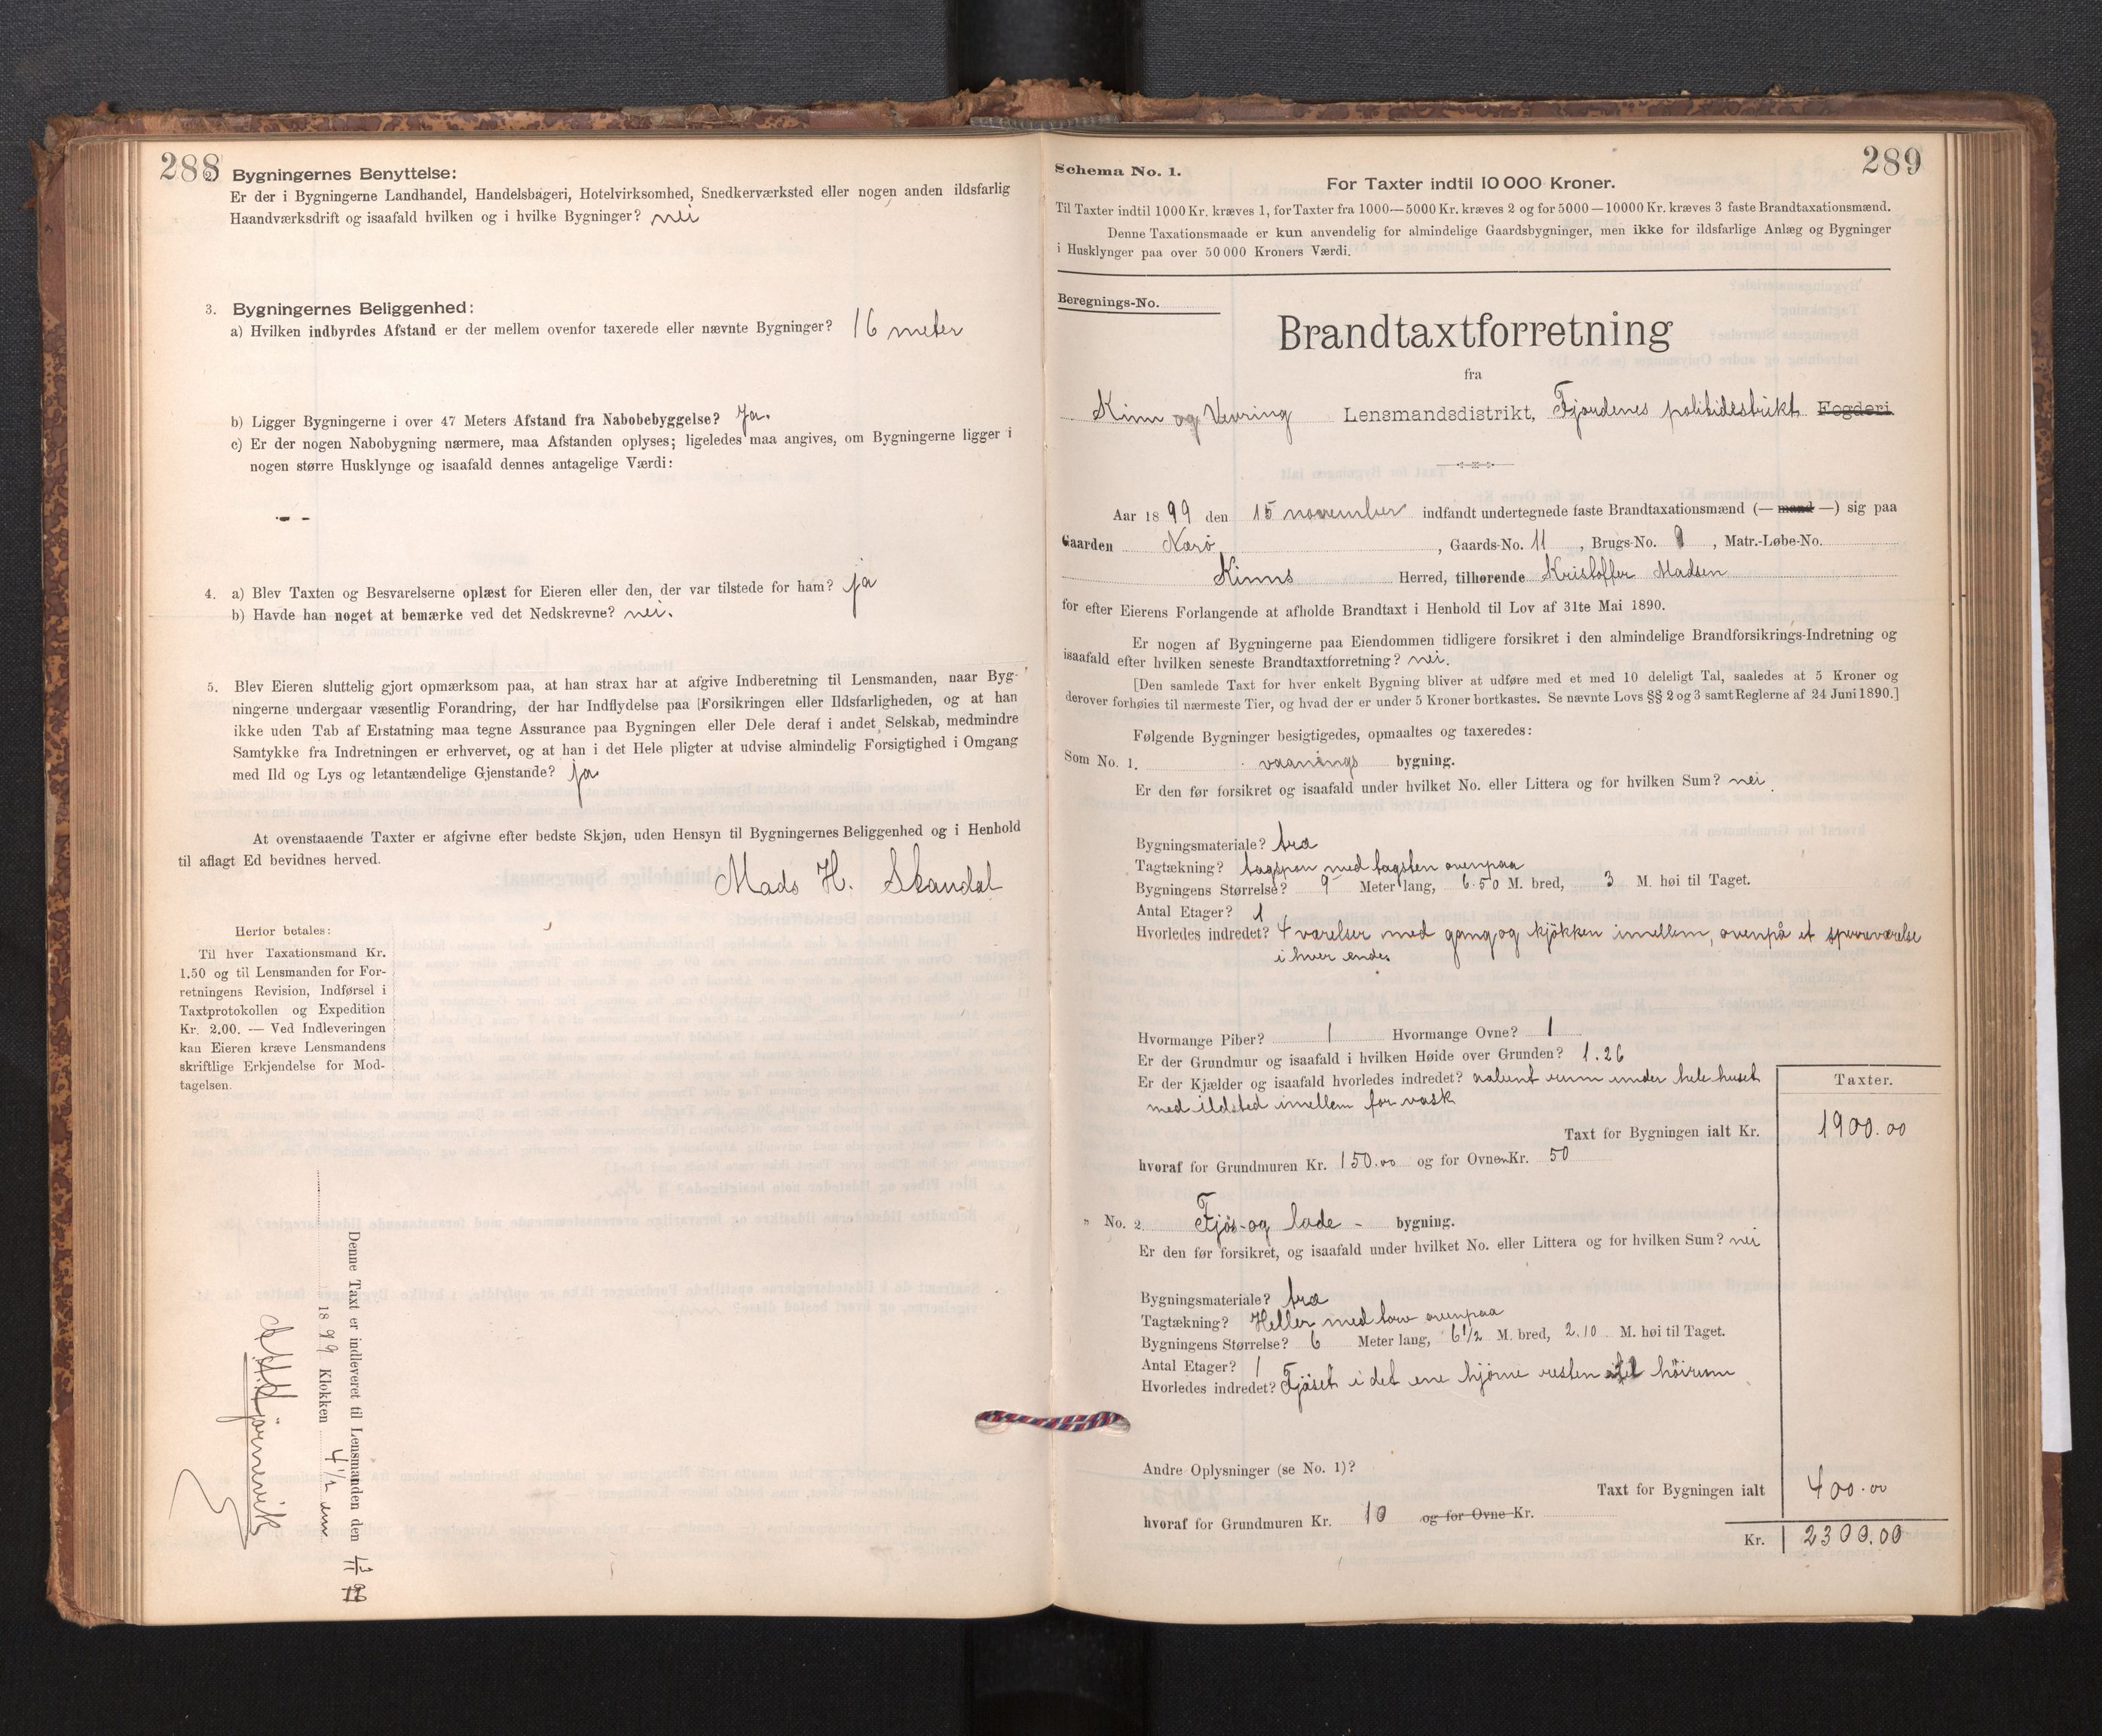 288
Bygningernes Benyttelse:
Er der i Bygningerne Landhandel, Handelsbageri, Hotelvirksomhed, Snedkerværksted eller nogen anden ildsfarlig
Haandværksdrift og isaafald hvilken og i hvilke Bygninger? nei
3. Bygningernes Beliggenhed:
a) Hvilken indbyrdes Afstand er der mellem ovenfor taxerede eller nævnte Bygninger? 16 meter
b) Ligger Bygningerne i over 47 Meters Afstand fra Nabobebyggelse? Ja.
c) Er der nogen Nabobygning nærmere, maa Afstanden oplyses; ligeledes maa angives, om Bygningerne ligger i
nogen større Husklynge og isaafald dennes antagelige Værdi:
- -
4. a) Blev Taxten og Besvarelserne oplæst for Eieren eller den, der var tilstede for ham? ja
b) Havde han noget at bemærke ved det Nedskrevne? nei.
5. Blev Eieren sluttelig gjort opmærksom paa, at han strax har at afgive Indberetning til Lensmanden, naar Byg-
ningerne undergaar væsentlig Forandring, der har Indflydelse paa Forsikringen eller Ildsfarligheden, og at han
ikke uden Tab af Erstatning maa tegne Assurance paa Bygningen eller Dele deraf i andet Selskab, medmindre
Samtykke fra Indretningen er erhvervet, og at han i det Hele pligter at udvise almindelig Forsigtighed i Omgang
med Ild og Lys og letantændelige Gjenstande? ja
At ovenstaaende Taxter er afgivne efter bedste Skjøn, uden Hensyn til Bygningernes Beliggenhed og i Henhold
til aflagt Ed bevidnes herved.
Mads H. Standal
Herfor betales:
Til hver Taxationsmand Kr.
1.50 og til Lensmanden for For-
retningens Revision, Indførsel i
Taxtprotokollen og Expedition
Kr. 2.00. — Ved Indleveringen
kan Eieren kræve Lensmandens
skriftlige Erkjendelse for Mod-
tagelsen.
Denne Taxt er indleveret til Lensmanden den
1899 Klokken 4 1/2 em
289
Schema No. 1.
For Taxter indtil 10 000 Kroner.
Til Taxter indtil 1000 Kr. kræves 1, for Taxter fra 1000—5000 Kr. kræves 2 og for 5000—10000 Kr. kræves 3 faste Brandtaxationsmænd.
Denne Taxationsmaade er kun anvendelig for almindelige Gaardsbygninger, men ikke for ildsfarlige Anlæg og Bygninger
i Husklynger paa over 50 000 Kroners Værdi.
Beregnings-No.
Brandtaxtforretning
fra
Kinn og Vevring Lensmandsdistrikt, Fjordenes politidistrikt Fogderi
Aar 1899 den 15 november indfandt undertegnede faste Brandtaxationsmænd (— mand —) sig paa
Gaarden Nærø, Gaards-No. 11, Brugs-No. 8, Matr.-Løbe-No.
Kinns Herred, tilhørende Kristoffer Madsen
for efter Eierens Forlangende at afholde Brandtaxt i Henhold til Lov af 31te Mai 1890.
Er nogen af Bygningerne paa Eiendommen tidligere forsikret i den almindelige Brandforsikrings-Indretning og
isaafald efter hvilken seneste Brandtaxtforretning? nei.
[Den samlede Taxt for hver enkelt Bygning bliver at udføre med et med 10 deleligt Tal, saaledes at 5 Kroner og
derover forhøies til nærmeste Tier, og hvad der er under 5 Kroner bortkastes. Se nævnte Lovs §§ 2 og 3 samt Reglerne af 24 Juni 1890.]
Følgende Bygninger besigtigedes, opmaaltes og taxeredes:
Som No. 1. vaanings bygning.
Er den før forsikret og isaafald under hvilket No. eller Littera og for hvilken Sum? nei.
Bygningsmateriale? træ
Tagtækning? tagspon med tagsten ovenpaa
Bygningens Størrelse? 9 Meter lang, 6.50 M. bred, 3 M. høi til Taget.
Antal Etager? 1
Hvorledes indredet? 4 værelser med gang og kjøkken imellem, ovenpå et sperreværelse
i hver ende.
Hvormange Piber? 1 Hvormange Ovne? 1
Er der Grundmur og isaafald i hvilken Høide over Grunden? 1.26
Er der Kjælder og isaafald hvorledes indredet? aabent rum under hele huset
med ildsted imellem for vask
Taxter.
Taxt for Bygningen ialt Kr. 1900.00
hvoraf for Grundmuren Kr. 150.00 og for Ovnen Kr. 50
" No. 2. Fjös- og lade - bygning.
Er den før forsikret, og isaafald under hvilket No. eller Littera og for hvilken Sum? nei
Bygningsmateriale? træ
Tagtækning? Heller med torv ovenpaa
Bygningens Størrelse? 6 Meter lang, 6 1/2 M. bred, 2.10 M. høi til Taget.
Antal Etager? 1
Hvorledes indredet? Fjöset i det ene hjörne resten til höirum
Andre Oplysninger (se No. 1)?
Taxt for Bygningen ialt 400.00
hvoraf for Grundmuren Kr. 10 og for Ovne Kr.
Kr. 2300.00